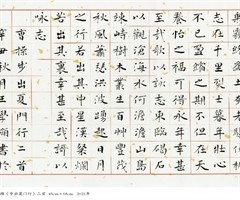 志在千里烈士暮年壯心
不已盈縮之期不但在天
養怡之福可得永年幸甚
至哉歌以詠志東臨碣石
以觀滄海水何澹澹山島
竦峙樹木叢生百草豐茂
秋風蕭瑟洪波涌起日月
之行若出其中星漢燦爛
若出其裏幸甚至哉歌以
咏志
曹操步出夏門行二首
辛丑秋月
操《步出夏门行》二首 45cm×68cm 2021年